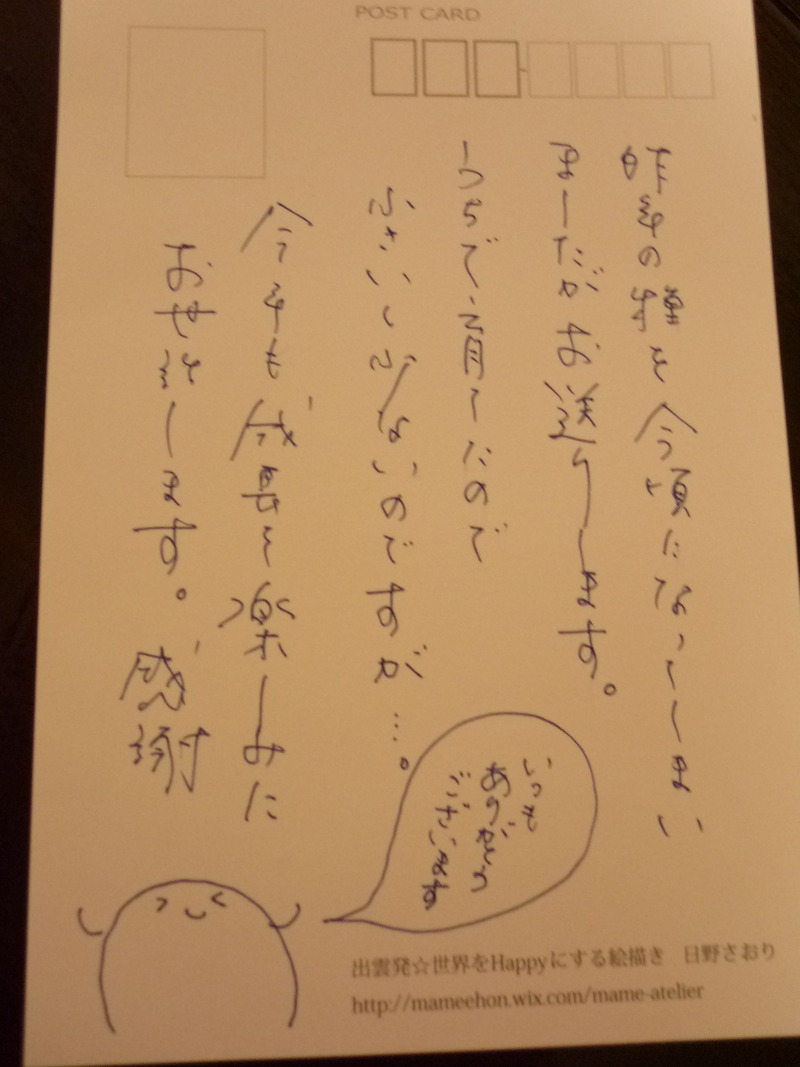 POST CARD
昨年の を今頃になってしまい
ましたがお送りします。
うちで したので
のですが…。
今年も を楽しみに
します。感謝
いつも
ありがとう
ございます
出雲発☆世界をHappyにする絵描き　日野さおり
http://mameehon.wix.com/mame-atelier